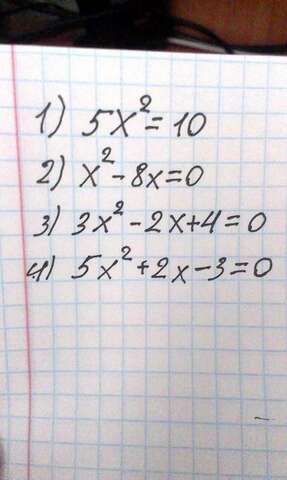 1) 5x² = 10
2) x² - 8x = 0
3) 3x² - 2x + 4 = 0
4) 5x² + 2x - 3 = 0